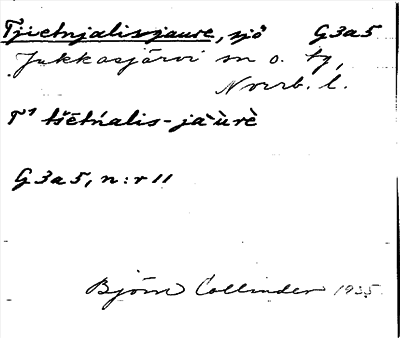 Tjietnjalisjaure, sjö G3a5
Jukkasjärvi sn o. tg,
Norrb. l.
T¹ tšētńalis-jàùrè
G3a5, n:r 11
Björn Collinder 1935